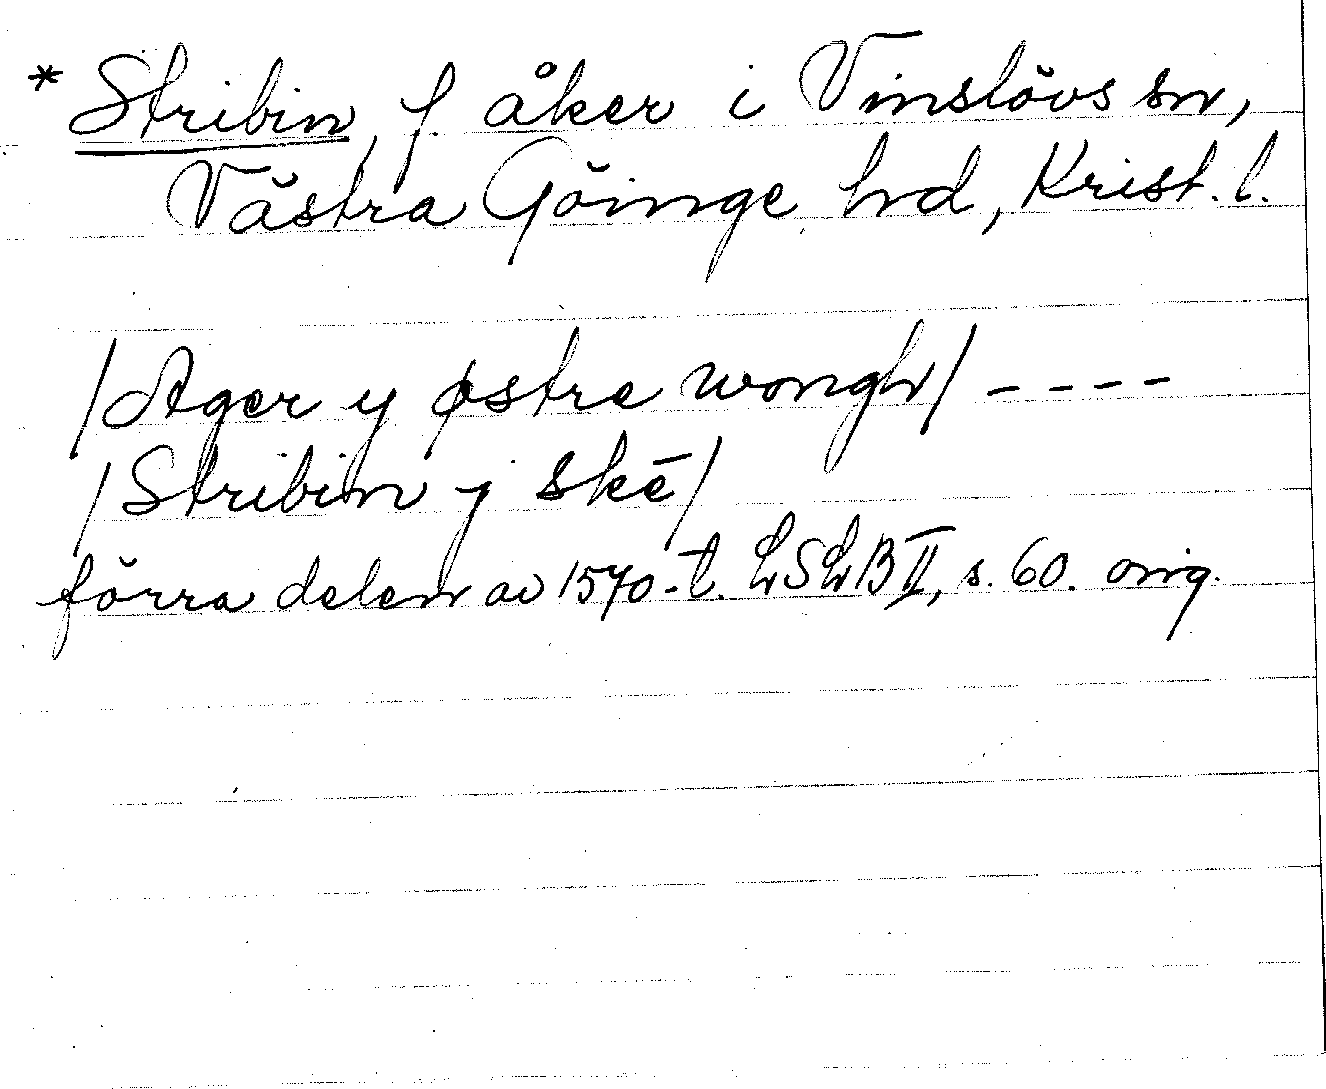 * Stribin, f. åker i Vinslövs sn,
Västra Göinge hd, Krist. l.
/Ager y østre wongh/ ----
/Stribin y skē/
förra delen av 1570-t. LSLB II, s. 60. orig.